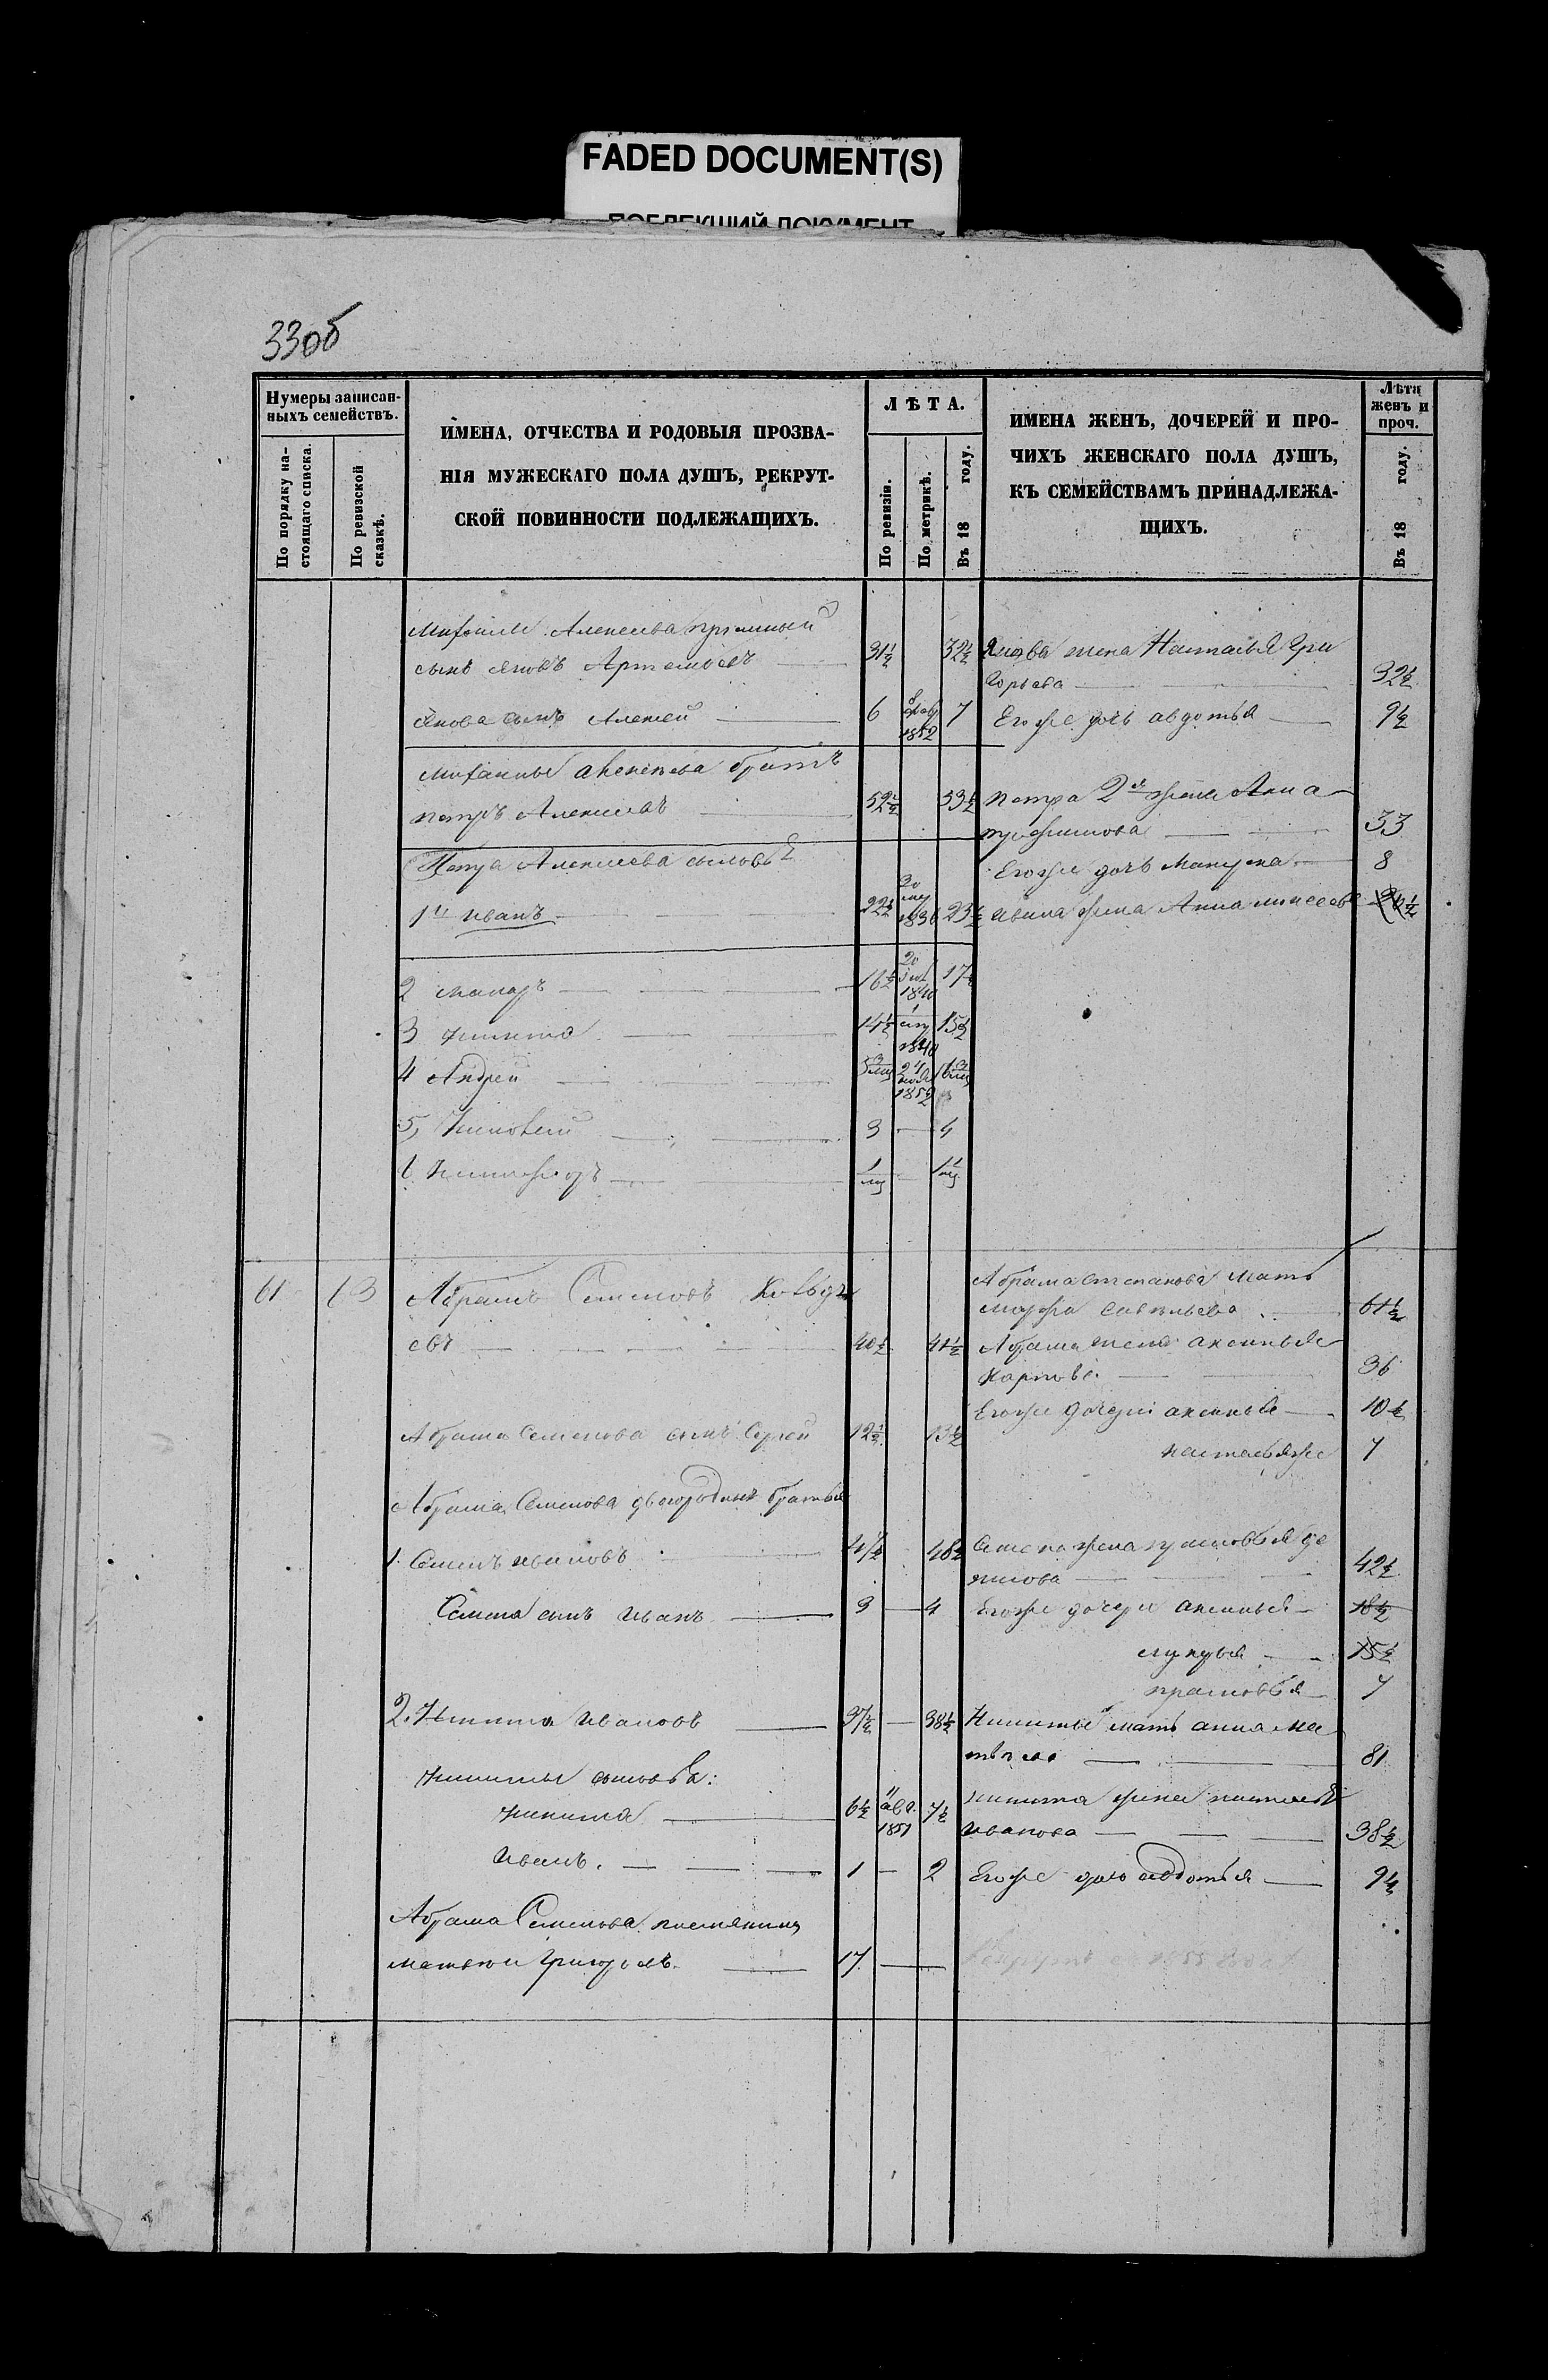 FADED DOCUMENT(S)
33об
Нумеры записан-
ныхъ семействъ.
По порядку на-
стоящаго списка.
По ревизской
сказкѣ.
ИМЕНА, ОТЧЕСТВА И РОДОВЫЯ ПРОЗВА-
НІЯ МУЖЕСКАГО ПОЛА ДУШЪ, РЕКРУТ-
СКОЙ ПОВИННОСТИ ПОДЛЕЖАЩИХЪ.
ЛѢТА.
По ревизіи.
По метрикѣ.
Въ 18 году.
ИМЕНА ЖЕНЪ, ДОЧЕРЕЙ И ПРО-
ЧИХЪ ЖЕНСКАГО ПОЛА ДУШЪ,
КЪ СЕМЕЙСТВАМЪ ПРИНАДЛЕЖА-
ЩИХЪ.
Лѣта
женъ и
проч.
Въ 18 году.
Михаилы Алексеева пріемный
сынъ Яковъ Артемьевъ 31½ 32½
Якова жена Настасья Гри
горьева 32½
Якова сынъ Алексей 6 1852 7
Егоже дочь авдотья 9½
Михаилы алексеева братъ
петръ Алексеевъ 52½ 53½
петра 2я жена Анна
33
Петра Алексеева сыновья
Егоже дочь 8
1й иванъ 22½ 1836 23½
ивана жена Анна
2 макаръ 16½ 20 1840 17½
3 никита 14½ 15½
4 Андрей 24 1852
5, 3 4
61 63 Абрамъ Семеновъ
евъ 40½ 41½
Абрама степанова мать
марфа савельева 61½
Абрама жена аксинья
Карпова 36
Егоже дочери аксинья 10½
Абрама Семенова сынъ Сергей 12½ 13½
настасья 7
Абрама Семенова двоюродные братья
1. Семенъ ивановъ 47½ 48½
Семена жена прасковья де
42½
Семена сынъ иванъ 3 4
Егоже дочери аксинья 18½
лукерья 15½
прасковья 7
2. Никита ивановъ 37½ 38½
Никиты мать анна ма
81
Никиты сыновья:
никита 6½ 11 авг. 1851 7½
никиты жена настасья
иванова 38½
иванъ. 1 2
Егоже дочь авдотья 9½
Абрама Семенова племянникъ
матвей григорьевъ 17